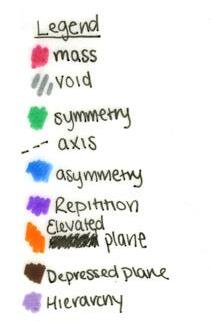 Legend
mass
void
symmetry
axis
asymmetry
Repitition
Elevated
plane
Depressed plane
Hierarchy